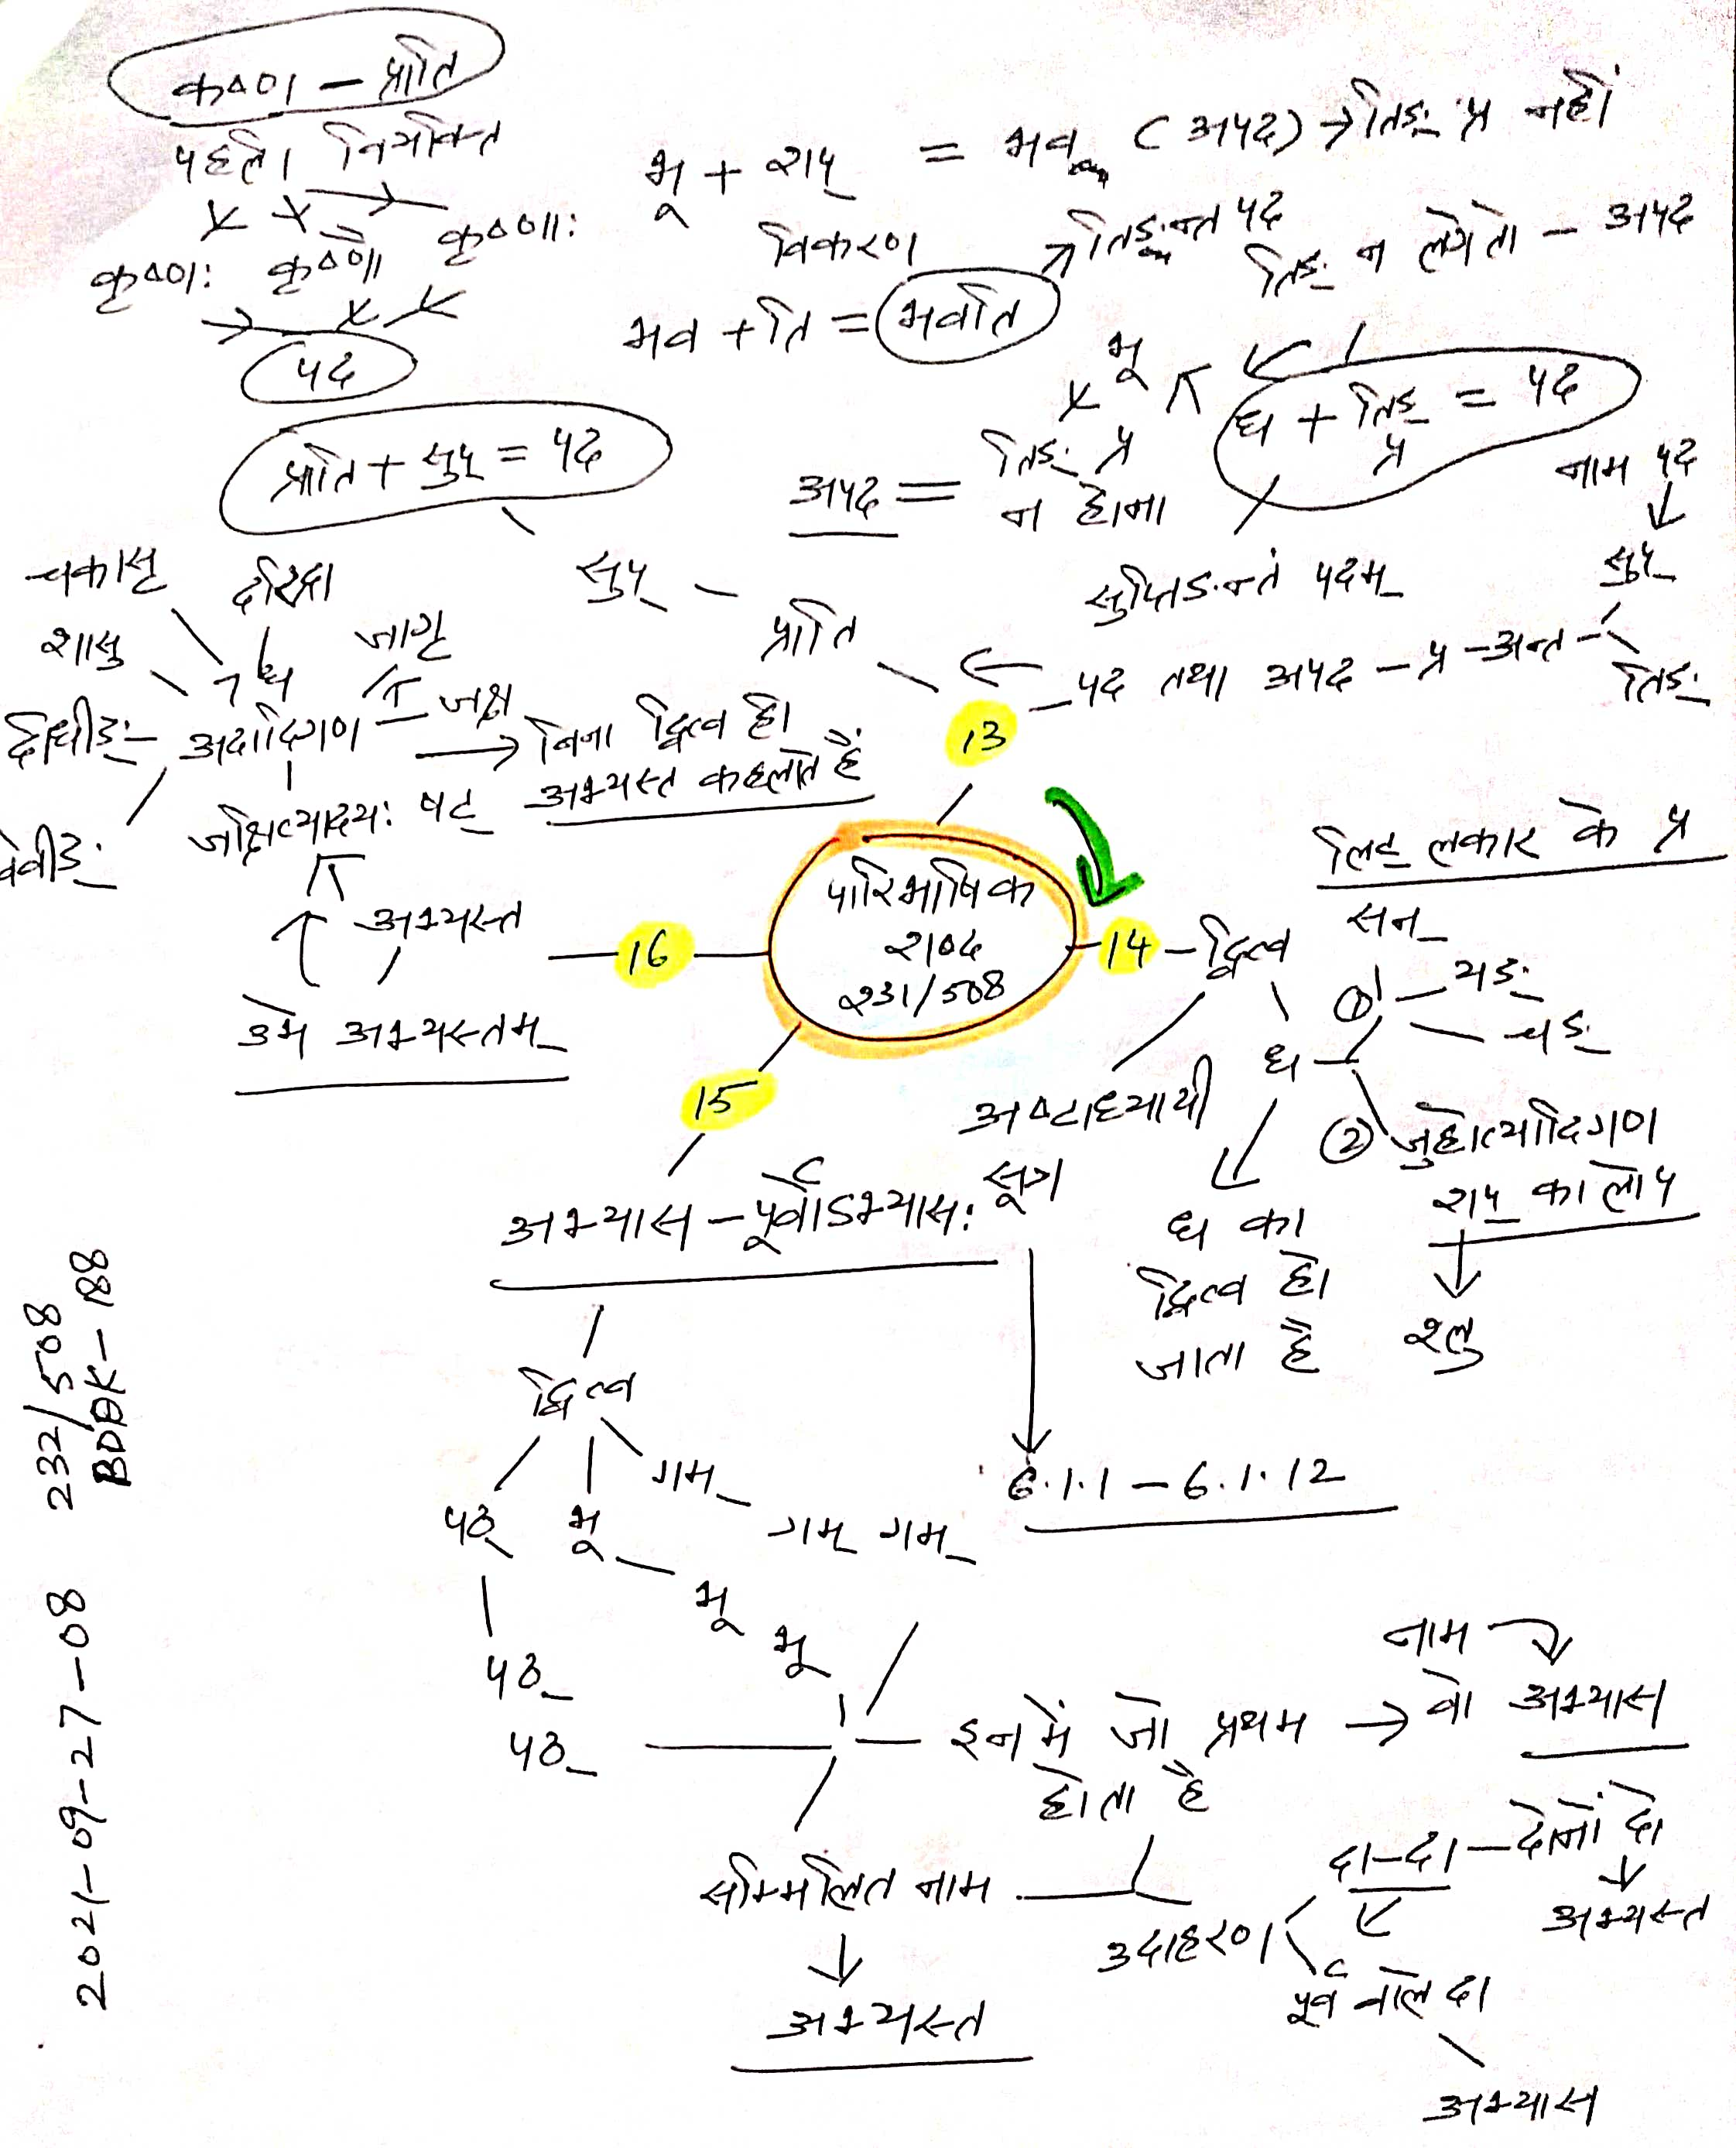 कृष्ण – प्राति
पहली विभक्ति
कृष्णः कृष्णौ कृष्णाः
पद
भू + शप् = भव (अपद) → तिङ् प्र नहीं
विकरण
तिङन्त पद
तिङ् न लगे तो – अपद
भव + ति = भवति
भू
प्राति + सुप् = पद
अपद = तिङ् प्र
न होना
ध + तिङ् = पद
प्र
नाम पद
सुप्
सुप् – प्राति
सुप्तिङन्तं पदम्
13 – पद तथा अपद – प्र – अन्त
तिङ्
चकासृ
दरिद्रा
शासु
जागृ
ध
दीधीङ् – अदादिगण – जक्ष
वेवीङ्
→ बिना द्वित्व ही
अभ्यस्त कहलाते हैं
जक्षित्यादयः षट्
अभ्यस्त
उभे अभ्यस्तम्
16
पारिभाषिक
शब्द
231/508
14 – द्वित्व
लिट् लकार के प्र
सन्
① यङ्
चङ्
ध
② जुहोत्यादिगण
शप् का लोप
श्लु
अष्टाध्यायी
ध का
द्वित्व हो
जाता है
15
अभ्यास – पूर्वोऽभ्यासः सूत्र
6.1.1 – 6.1.12
द्वित्व
पठ् भू गम्
गम् गम्
भू
भू
पठ्
पठ्
इनमें जो प्रथम → वो अभ्यास
होता है
नाम
सम्मिलित नाम
अभ्यस्त
उदाहरण
दा – दा – दोनों दा
अभ्यस्त
पूर्व वाले दा
अभ्यास
2021-09-27-08 232/508
BDDK-188